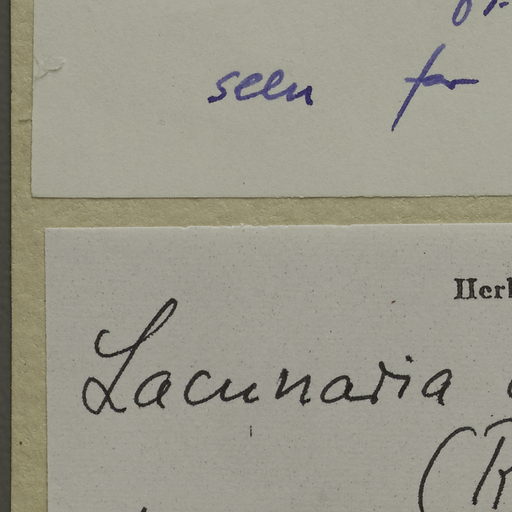 seen for
Herb
Lacunaria
(R